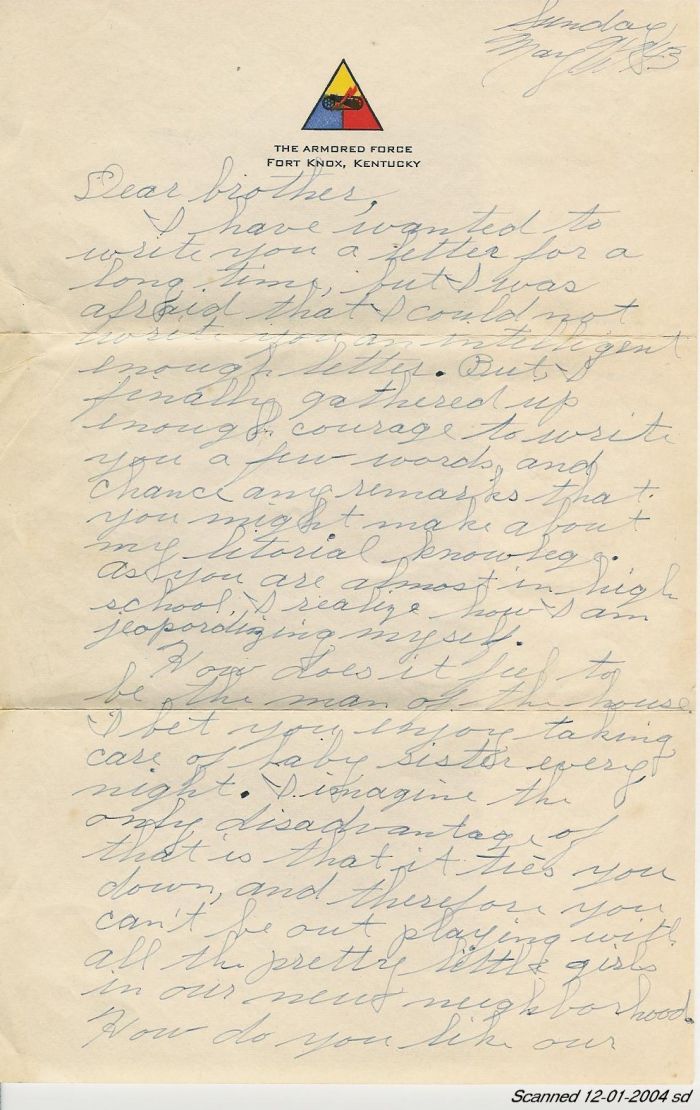 Sunday
May
THE ARMORED FORCE
FORT KNOX, KENTUCKY
Dear brother,
I have wanted to
write you a letter for a
long time, but I was
afraid that I could not
write you an intelligent
enough letter. But, I
finally gathered up
enough courage to write
you a few words, and
chance any remarks that
you might make about
my litorial knowlege.
As you are almost in high
school, I realize how I am
jeopordizing myself.
How does it feel to
be the man of the house.
I bet you enjoy taking
care of baby sister every
night. I imagine the
only disadvantage of
that is that it ties you
down, and therefore you
can't be out playing with
all the pretty little girls
in our new neighborhood.
How do you like our
Scanned 12-01-2004 sd